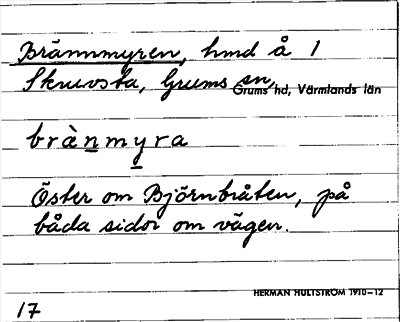 Brännmyren, hmd å 1
Skruvsta, Grums sn,
Grums hd, Värmlands län
brànmyra
Öster om Björnbråten, på
båda sidor om vägen.
HERMAN HULTSTRÖM 1910-12
17